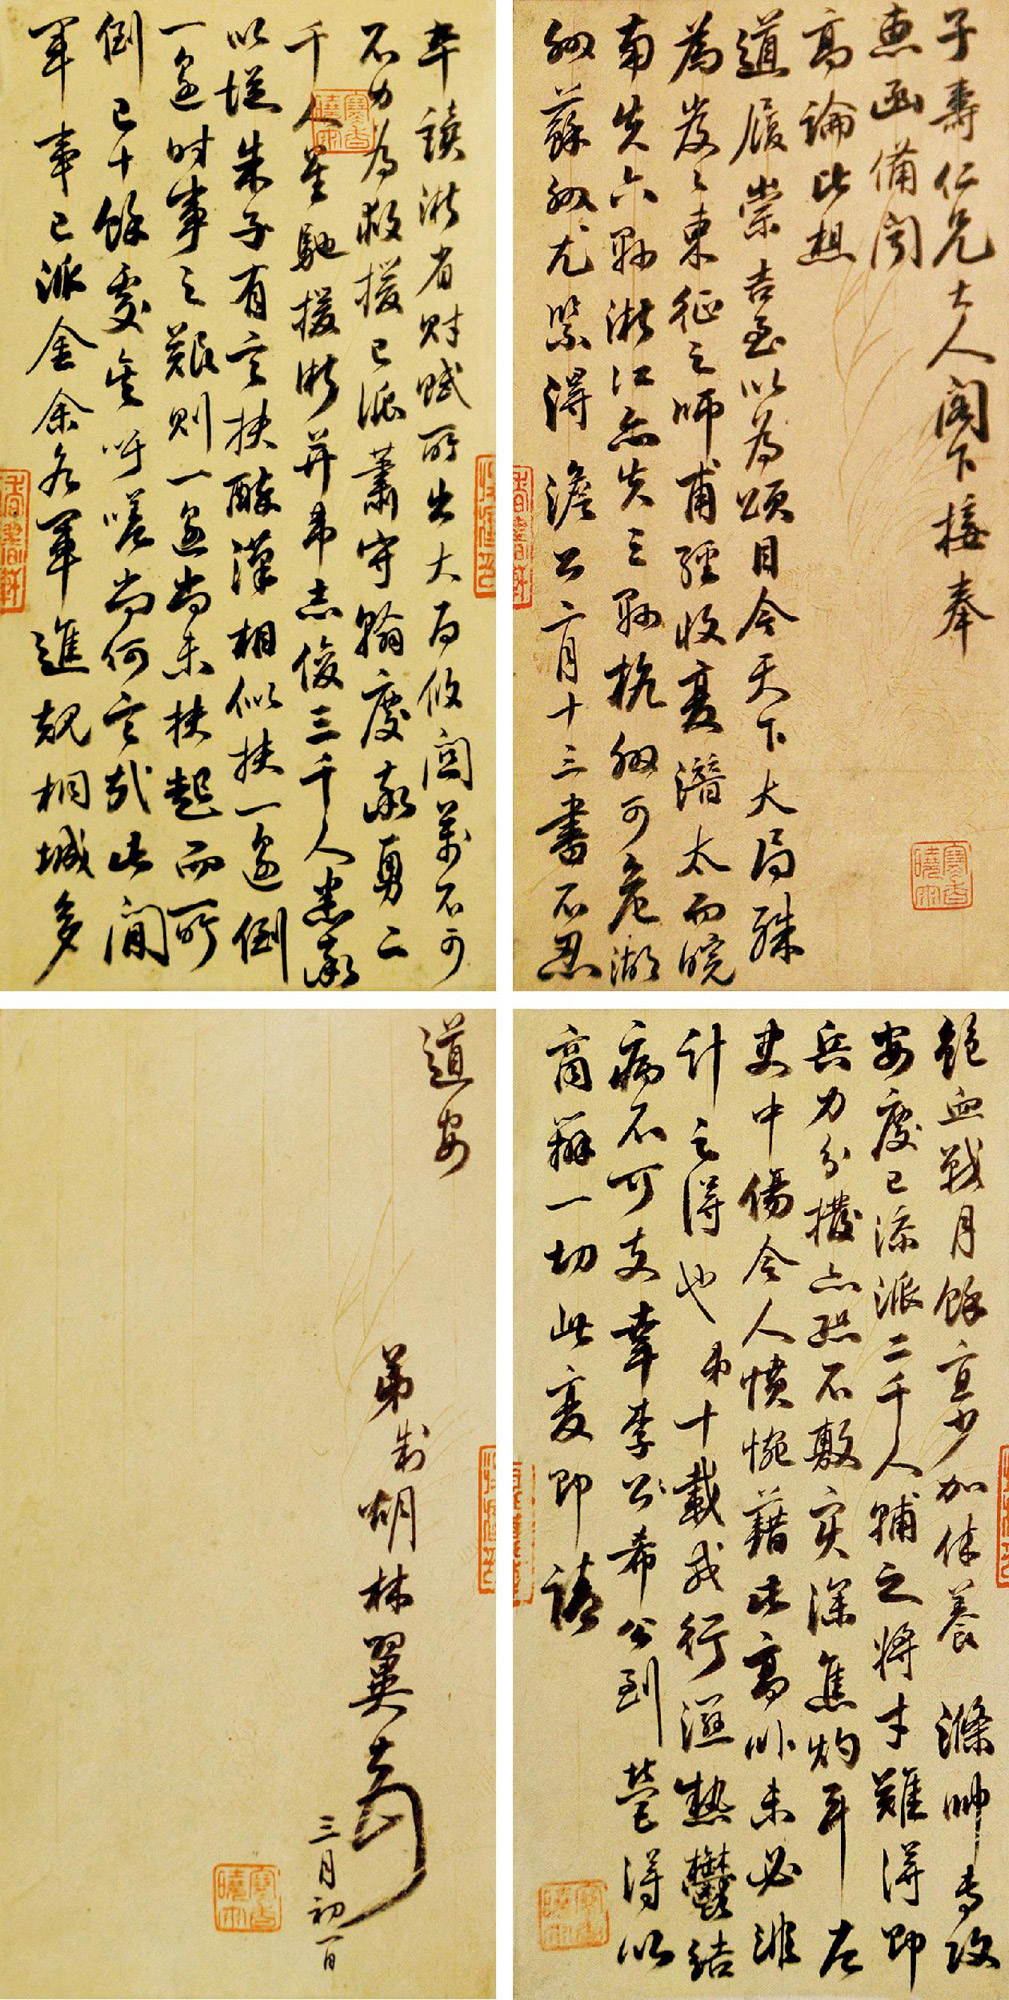 子壽仁兄大人閣下接奉
惠函備聞
高論比想
道履崇吉至以為頌目今天下大局殊
為岌岌東征之師甫經收復潛太而皖
南失六縣浙江亦失三縣杭州可危湖
州蘇州尤緊得滌公二月十三書不忍
卒讀浙省財賦所出大局攸關萬不可
不力為救援已派蕭守翰慶率勇二
千人星馳援浙并弟志俊三千人悉率
以從朱子有言扶醉漢相似扶一邊倒
一邊時事之艱則一邊尚未扶起而所
倒已十餘處矣吁嗟尚何言哉此間
軍事已派金余各軍進規桐城多
鮑血戰月餘宜少加休養滌帥專攻
安慶已添派二千人輔之將才難得即
兵力分撥亦恐不敷實深焦灼耳左
史中傷令人憤惋藉此高臥未必非
計之得也弟十載戎行濕熱鬱結
病不可支幸李公希公到營得以
商辦一切此復即請
道安
弟制胡林翼頓
三月初一日